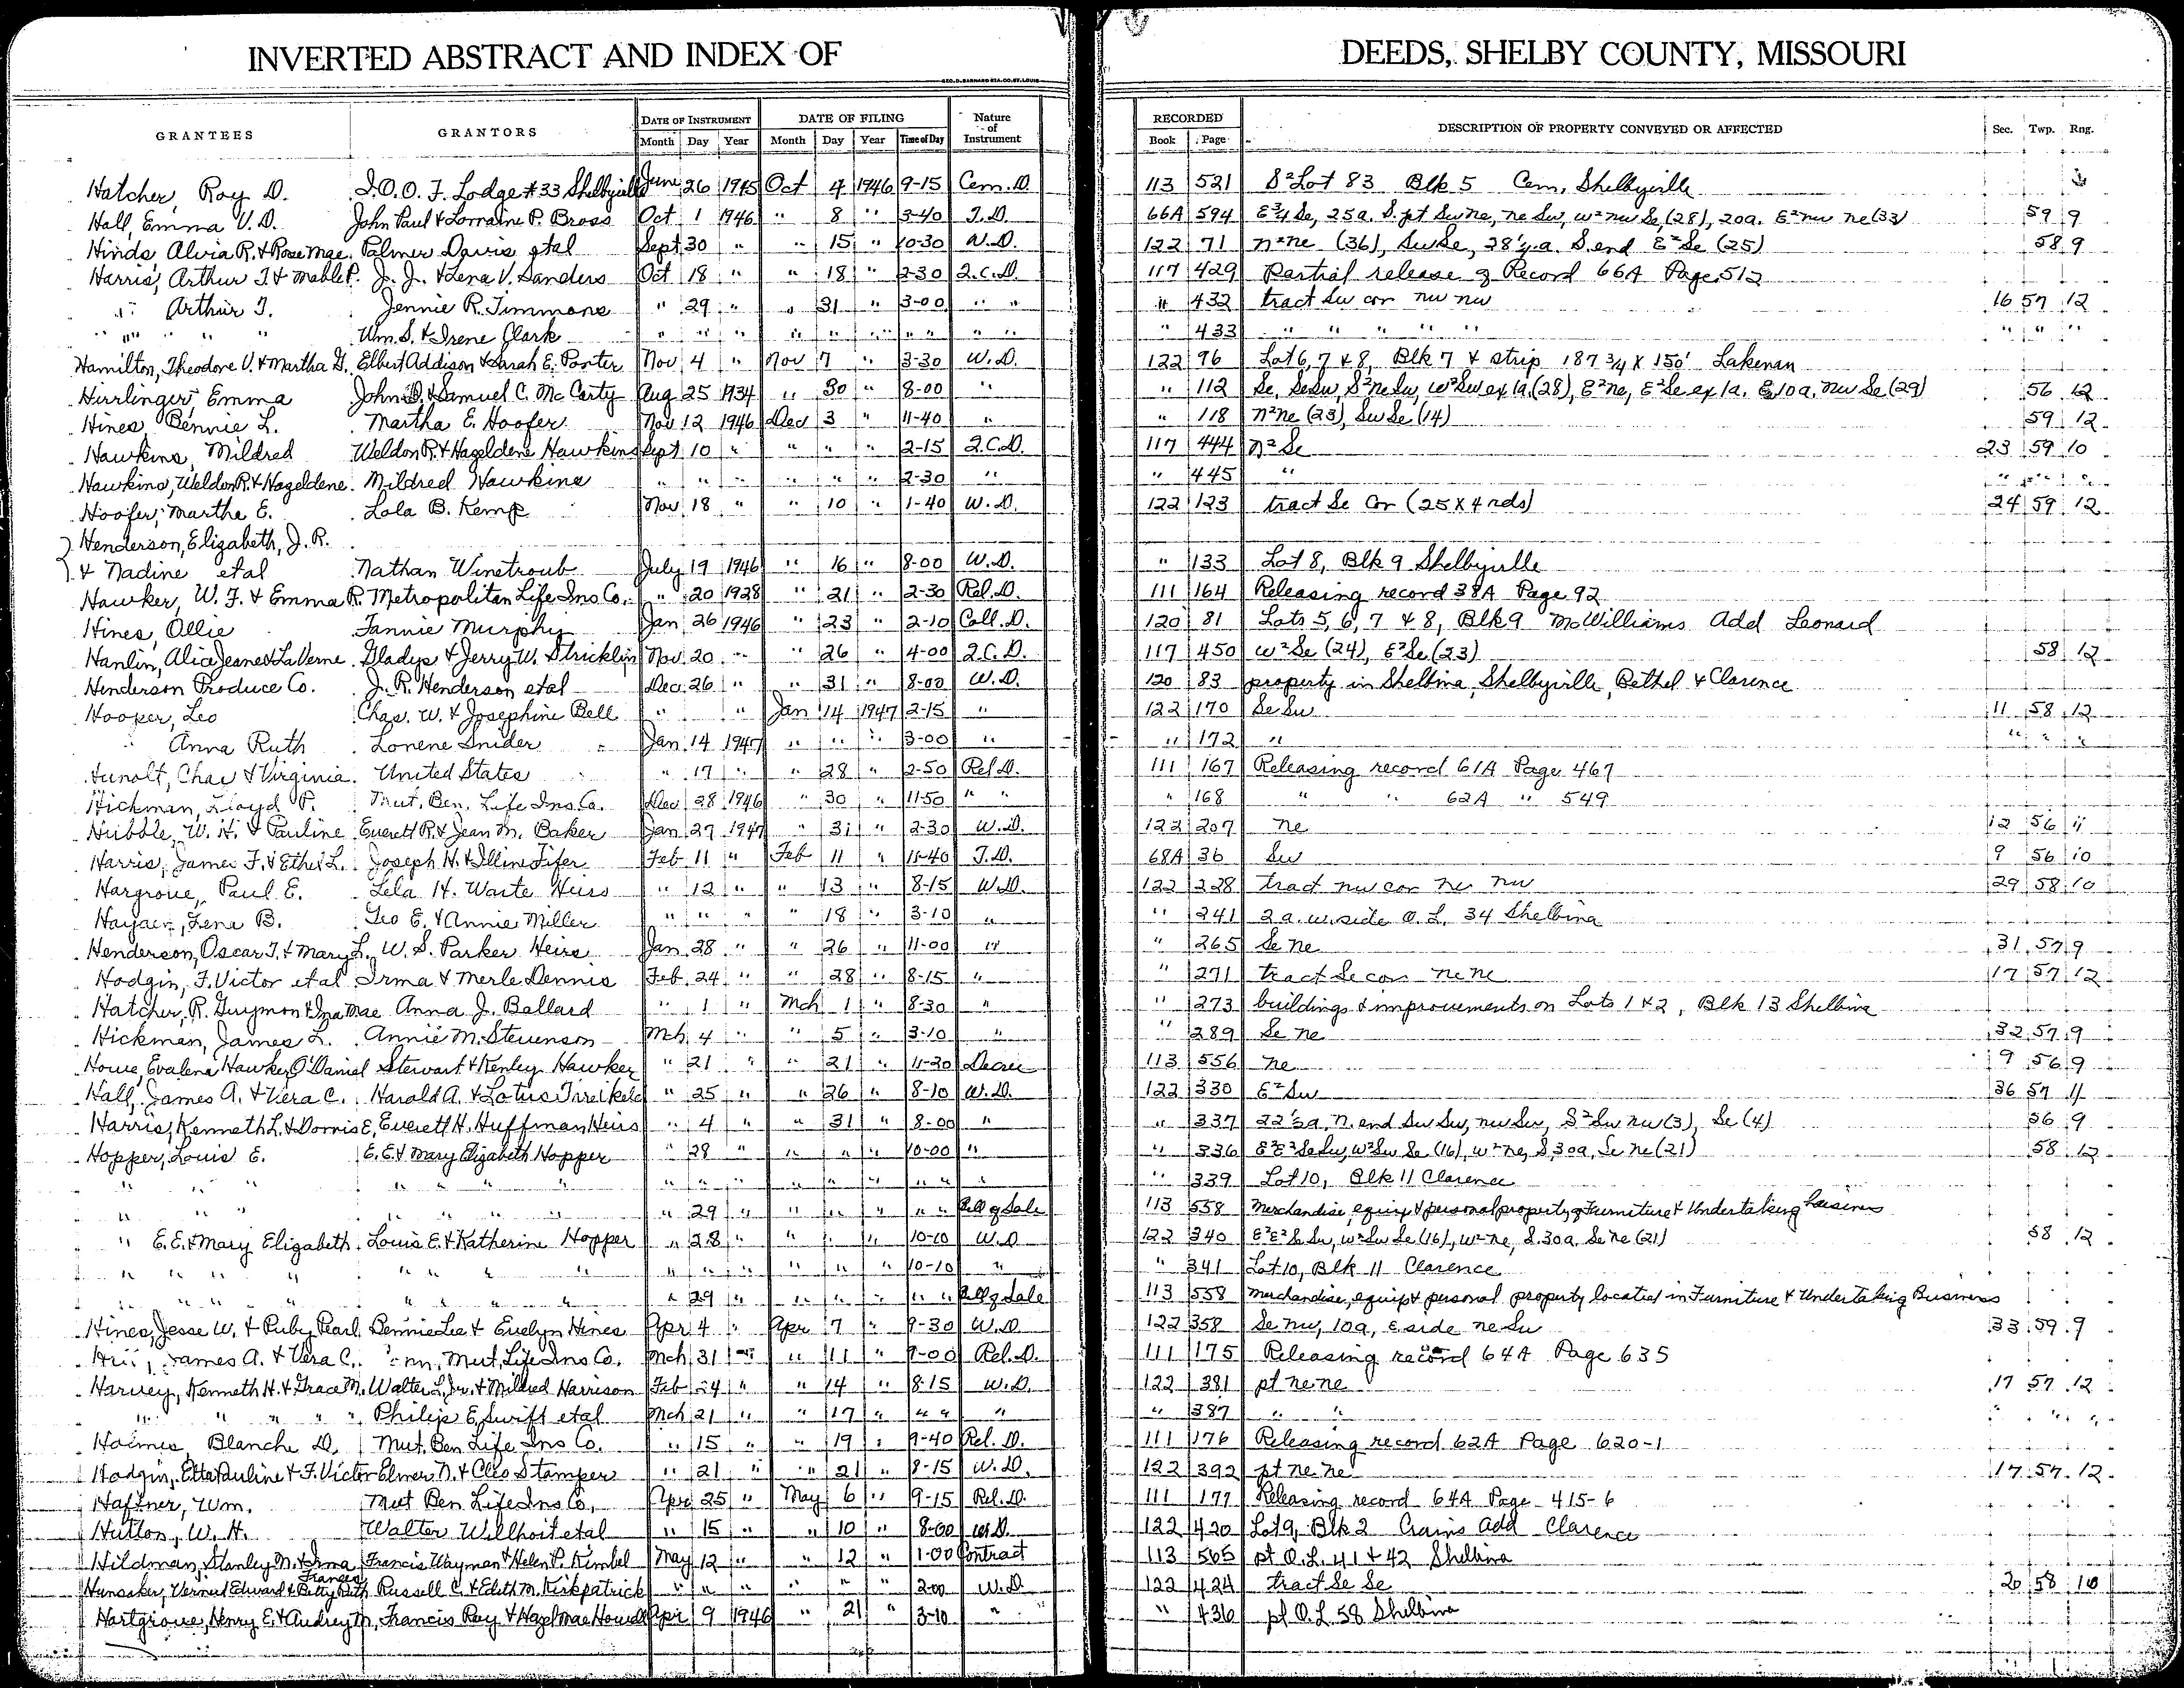 INVERTED ABSTRACT AND INDEX OF DEEDS, SHELBY COUNTY, MISSOURI
GEO. D. BARNARD STA. CO. ST. LOUIS
GRANTEES GRANTORS DATE OF INSTRUMENT DATE OF FILING Nature of Instrument RECORDED DESCRIPTION OF PROPERTY CONVEYED OR AFFECTED Sec. Twp. Rng.
Month Day Year Month Day Year Time of Day Book Page
Hatcher, Roy D. I.O.O.F. Lodge #33 Shelbyville June 26 1945 Oct 4 1946 9-15 Cem. D. 113 521 S² Lot 83 Blk 5 Cem, Shelbyville
Hall, Emma V.D. John Paul & Lorraine P. Bross Oct 1 1946 " 8 " 3-40 T.D. 66A 594 E¾ Se, 25a. S. pt Sw ne, ne Sw, W² nw Se, (28), 20a. E² nw ne (33) 59 9
Hinds, Alvia R. & Rose Mae Palmer Davis etal Sept 30 " " 15 " 10-30 W.D. 122 71 n² ne (36), Sw Se, 28 a. S. end E² Se (25) 58 9
Harris, Arthur T. & Mable P. J.J. & Lena V. Sanders Oct 18 " " 18 " 2-30 Q.C.D. 117 429 Partial release of Record 66A Page 512
" Arthur T. Jennie R. Timmons " 29 " " 31 " 3-00 " " " 432 tract Sw cor nw nw 16 57 12
" " " " Wm. S. & Irene Clark " " " " " " " " " " " 433 " " " " " " " "
Hamilton, Theodore V. & Martha G. Elbert Addison & Sarah E. Porter Nov 4 " Nov 7 " 3-30 W.D. 122 96 Lot 6, 7 & 8, Blk 7 & strip 187 3/4 X 150' Lakenan
Hirrlinger, Emma John D. & Samuel C. McCarty Aug 25 1934 " 30 " 8-00 " " 112 Se, Se Sw, S² ne Sw, W² Sw ex 1a. (28), E² ne, E² Se ex 1a. E 10a. nw Se (29) 56 12
Hines, Bennie L. Martha E. Hoofer Nov 12 1946 Dec 3 " 11-40 " " 118 n² ne (23), Sw Se (14) 59 12
Hawkins, Mildred Weldon R. & Hazeldene Hawkins Sept 10 " " " " 2-15 Q.C.D. 117 444 n² Se 23 59 10
Hawkins, Weldon R. & Hazeldene Mildred Hawkins " " " " " " 2-30 " " 445 " " " "
Hoofer, Martha E. Lola B. Kemp Nov 18 " " 10 " 1-40 W.D. 122 123 tract Se Cor (25 X 4 rds) 24 59 12
Henderson, Elizabeth, J.R.
& Nadine etal Nathan Winetroub July 19 1946 " 16 " 8-00 W.D. " 133 Lot 8, Blk 9 Shelbyville
Hawker, W.F. & Emma R. Metropolitan Life Ins Co. " 20 1928 " 21 " 2-30 Rel. D. 111 164 Releasing record 38A Page 92
Hines, Ollie Fannie Murphy Jan 26 1946 " 23 " 2-10 Coll. D. 120 81 Lots 5, 6, 7 & 8, Blk 9 McWilliams Add Leonard
Hanlin, Alice Jeane & LaVerne Gladys & Jerry W. Stricklin Nov. 20 " " 26 " 4-00 Q.C.D. 117 450 W² Se (24), E² Se (23) 58 12
Henderson Produce Co. J.R. Henderson etal Dec. 26 " " 31 " 8-00 W.D. 120 83 property in Shelbina, Shelbyville, Bethel & Clarence
Hooper, Leo Chas. W. & Josephine Bell " " Jan 14 1947 2-15 " 122 170 Se Sw 11 58 12
" Anna Ruth Lorene Snider Jan 14 1947 " " " 3-00 " " 172 " " " "
Hunolt, Chas & Virginia United States " 17 " " 28 " 2-50 Rel D. 111 167 Releasing record 61A Page 467
Hickman, Lloyd P. Mut. Ben. Life Ins Co. Dec 28 1946 " 30 " 11-50 " " " 168 " " 62A " 549
Hubble, W.H. & Pauline Everett R. & Jean M. Baker Jan 27 1947 " 31 " 2-30 W.D. 122 207 ne 12 56 11
Harris, James F. & Ethel L. Joseph H. & Illine Fifer Feb 11 " Feb 11 " 11-40 T.D. 68A 36 Sw 9 56 10
Hargrove, Paul E. Lela H. Waite Heirs " 12 " " 13 " 8-15 W.D. 122 228 tract nw cor ne nw 29 58 10
Lena B. Geo E. & Annie Miller " " " " 18 " 3-10 " " 241 2a. w. side O.L. 34 Shelbina
Henderson, Oscar T. & Mary L. W.S. Parker Heirs Jan 28 " " 26 " 11-00 " " 265 Se ne 31 57 9
Hodgin, F. Victor etal Irma & Merle Dennis Feb. 24 " " 28 " 8-15 " " 271 tract Se cor ne ne 17 57 12
Hatcher, R. Guymon & Ina Mae Anna J. Ballard " 1 " Mch 1 " 8-30 " " 273 buildings & improvements on Lots 1 & 2, Blk 13 Shelbina
Hickman, James L. Annie M. Stevenson Mch 4 " " 5 " 3-10 " " 289 Se ne 32 57 9
Howe, Evalena Hawker O'Daniel Stewart & Kenley Hawker " 21 " " 21 " 11-20 Decree 113 556 ne 9 56 9
Hall, James A. & Vera C. Harold A. & Lotus " 25 " " 26 " 8-10 W.D. 122 330 E² Sw 36 57 11
Harris, Kenneth L. & Dorris E. Everett H. Huffman Heirs " 4 " " 31 " 8-00 " " 337 n. end Sw Sw, nw Sw, S² Sw nw (3), Se (4) 56 9
Hopper, Louis E. E.E. & Mary Elizabeth Hopper " 28 " " " " 10-00 " " 336 E² E² Se Sw, W² Sw Se (16), W² ne, S. 30a. Se ne (21) 58 12
" " " " " " " " " " " " " " " " 339 Lot 10, Blk 11 Clarence
" " " " " " " 29 " " " " " " Bill of Sale 113 558 Merchandise, equip & personal property of Furniture & Undertaking business
" E.E. & Mary Elizabeth Louis E. & Katherine Hopper " 28 " " " " 10-10 W.D. 122 340 E² E² Se Sw, W² Sw Se (16), W² ne, S. 30a. Se ne (21) 58 12
" " " " " " " " " " " " " " 10-10 " " 341 Lot 10, Blk 11 Clarence
" " " " " " " " " 29 " " " " " " Bill of Sale 113 558 Merchandise, equip & personal property located in Furniture & Undertaking Business
Hines, Jesse W. & Ruby Pearl Bennie Lee & Evelyn Hines Apr 4 " Apr 7 " 9-30 W.D. 122 358 Se nw, 10a, E side ne Sw 33 59 9
James A. & Vera C. Mut. Life Ins Co. Mch 31 " " 11 " 9-00 Rel. D. 111 175 Releasing record 64A Page 635
Harvey, Kenneth H. & Grace M. Walter L. Jr. & Mildred Harrison Feb 24 " " 14 " 8-15 W.D. 122 381 pt ne ne 17 57 12
" " " " Philip E. Swift etal Mch 21 " " 17 " " " " " 387 " " " " "
Blanche D. Mut. Ben Life Ins Co. " 15 " " 19 " 9-40 Rel. D. 111 176 Releasing record 62A Page 620-1
Hodgin, Etta Pauline & F. Victor Elmer N. & Cleo Stamper " 21 " " 21 " 8-15 W.D. 122 392 pt ne ne 17 57 12
Haffner, Wm. Mut Ben Life Ins Co. Apr 25 " May 6 " 9-15 Rel. D. 111 177 Releasing record 64A Page 415-6
Hutton, W.H. Walter Willhoit etal " 15 " " 10 " 8-00 W.D. 122 420 Lot 9, Blk 2 Crains Add Clarence
Hildman, Stanley M. & Irma Francis Wayman & Helen P. Kimbel May 12 " " 12 " 1-00 Contract 113 565 pt O.L. 41 & 42 Shelbina
Hunsaker, Vernud Edward & Betty Ruth Frances Russell C. & Edith M. Kirkpatrick " " " " " " 2-00 W.D. 122 424 tract Se Se 20 58 10
Hartgrove, Henry E. & Audrey M. Francis Ray & Hazel Mae Howell Apr 9 1946 " 21 " 3-10 " " 436 pt O.L. 58 Shelbina